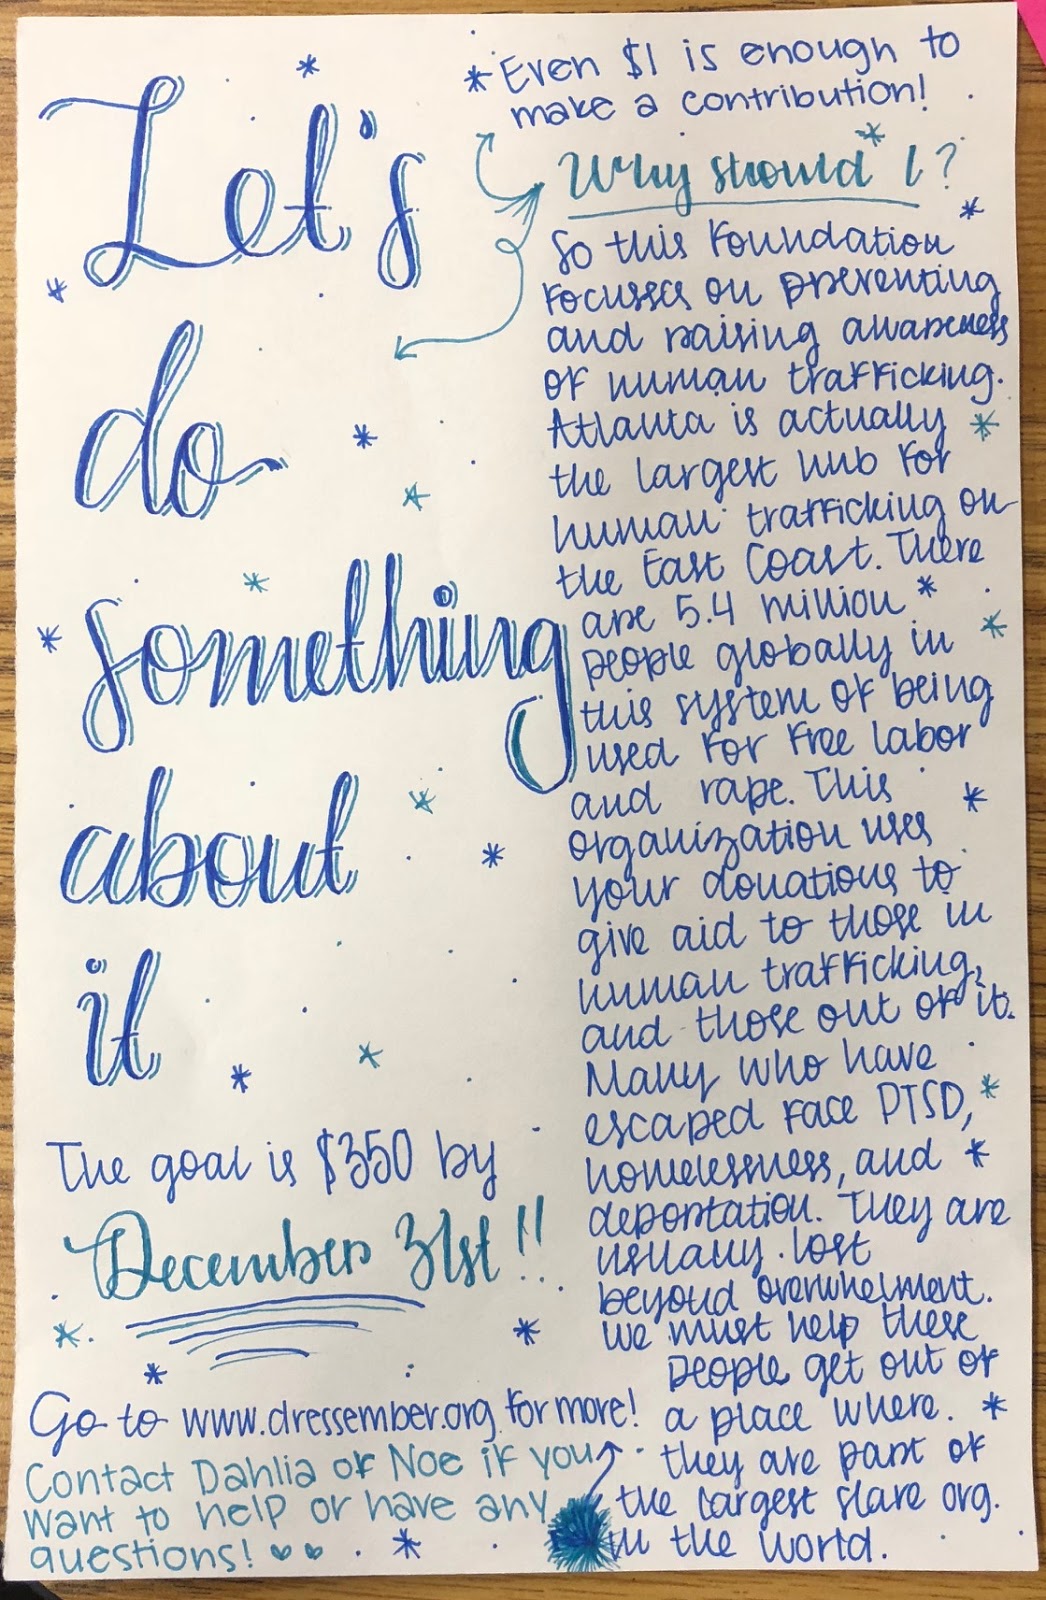 Let's
do
something
about
it
The goal is $350 by
December 31st!!
Go to www.dressember.org for more!
Contact Dahlia or Noe if you
want to help or have any
questions!
*Even $1 is enough to
make a contribution!
Why should I?
So this foundation
focusses on preventing
and raising awareness
of human trafficking.
Atlanta is actually
the largest hub for
human trafficking on
the East Coast. There
are 5.4 million
people globally in
this system of being
used for free labor
and rape. This
organization uses
your donations to
give aid to those in
human trafficking,
and those out of it.
Many who have
escaped face PTSD,
homelessness, and
deportation. They are
usually lost
beyond overwhelment.
We must help these
people get out of
a place where
they are part of
the largest slave org.
in the world.